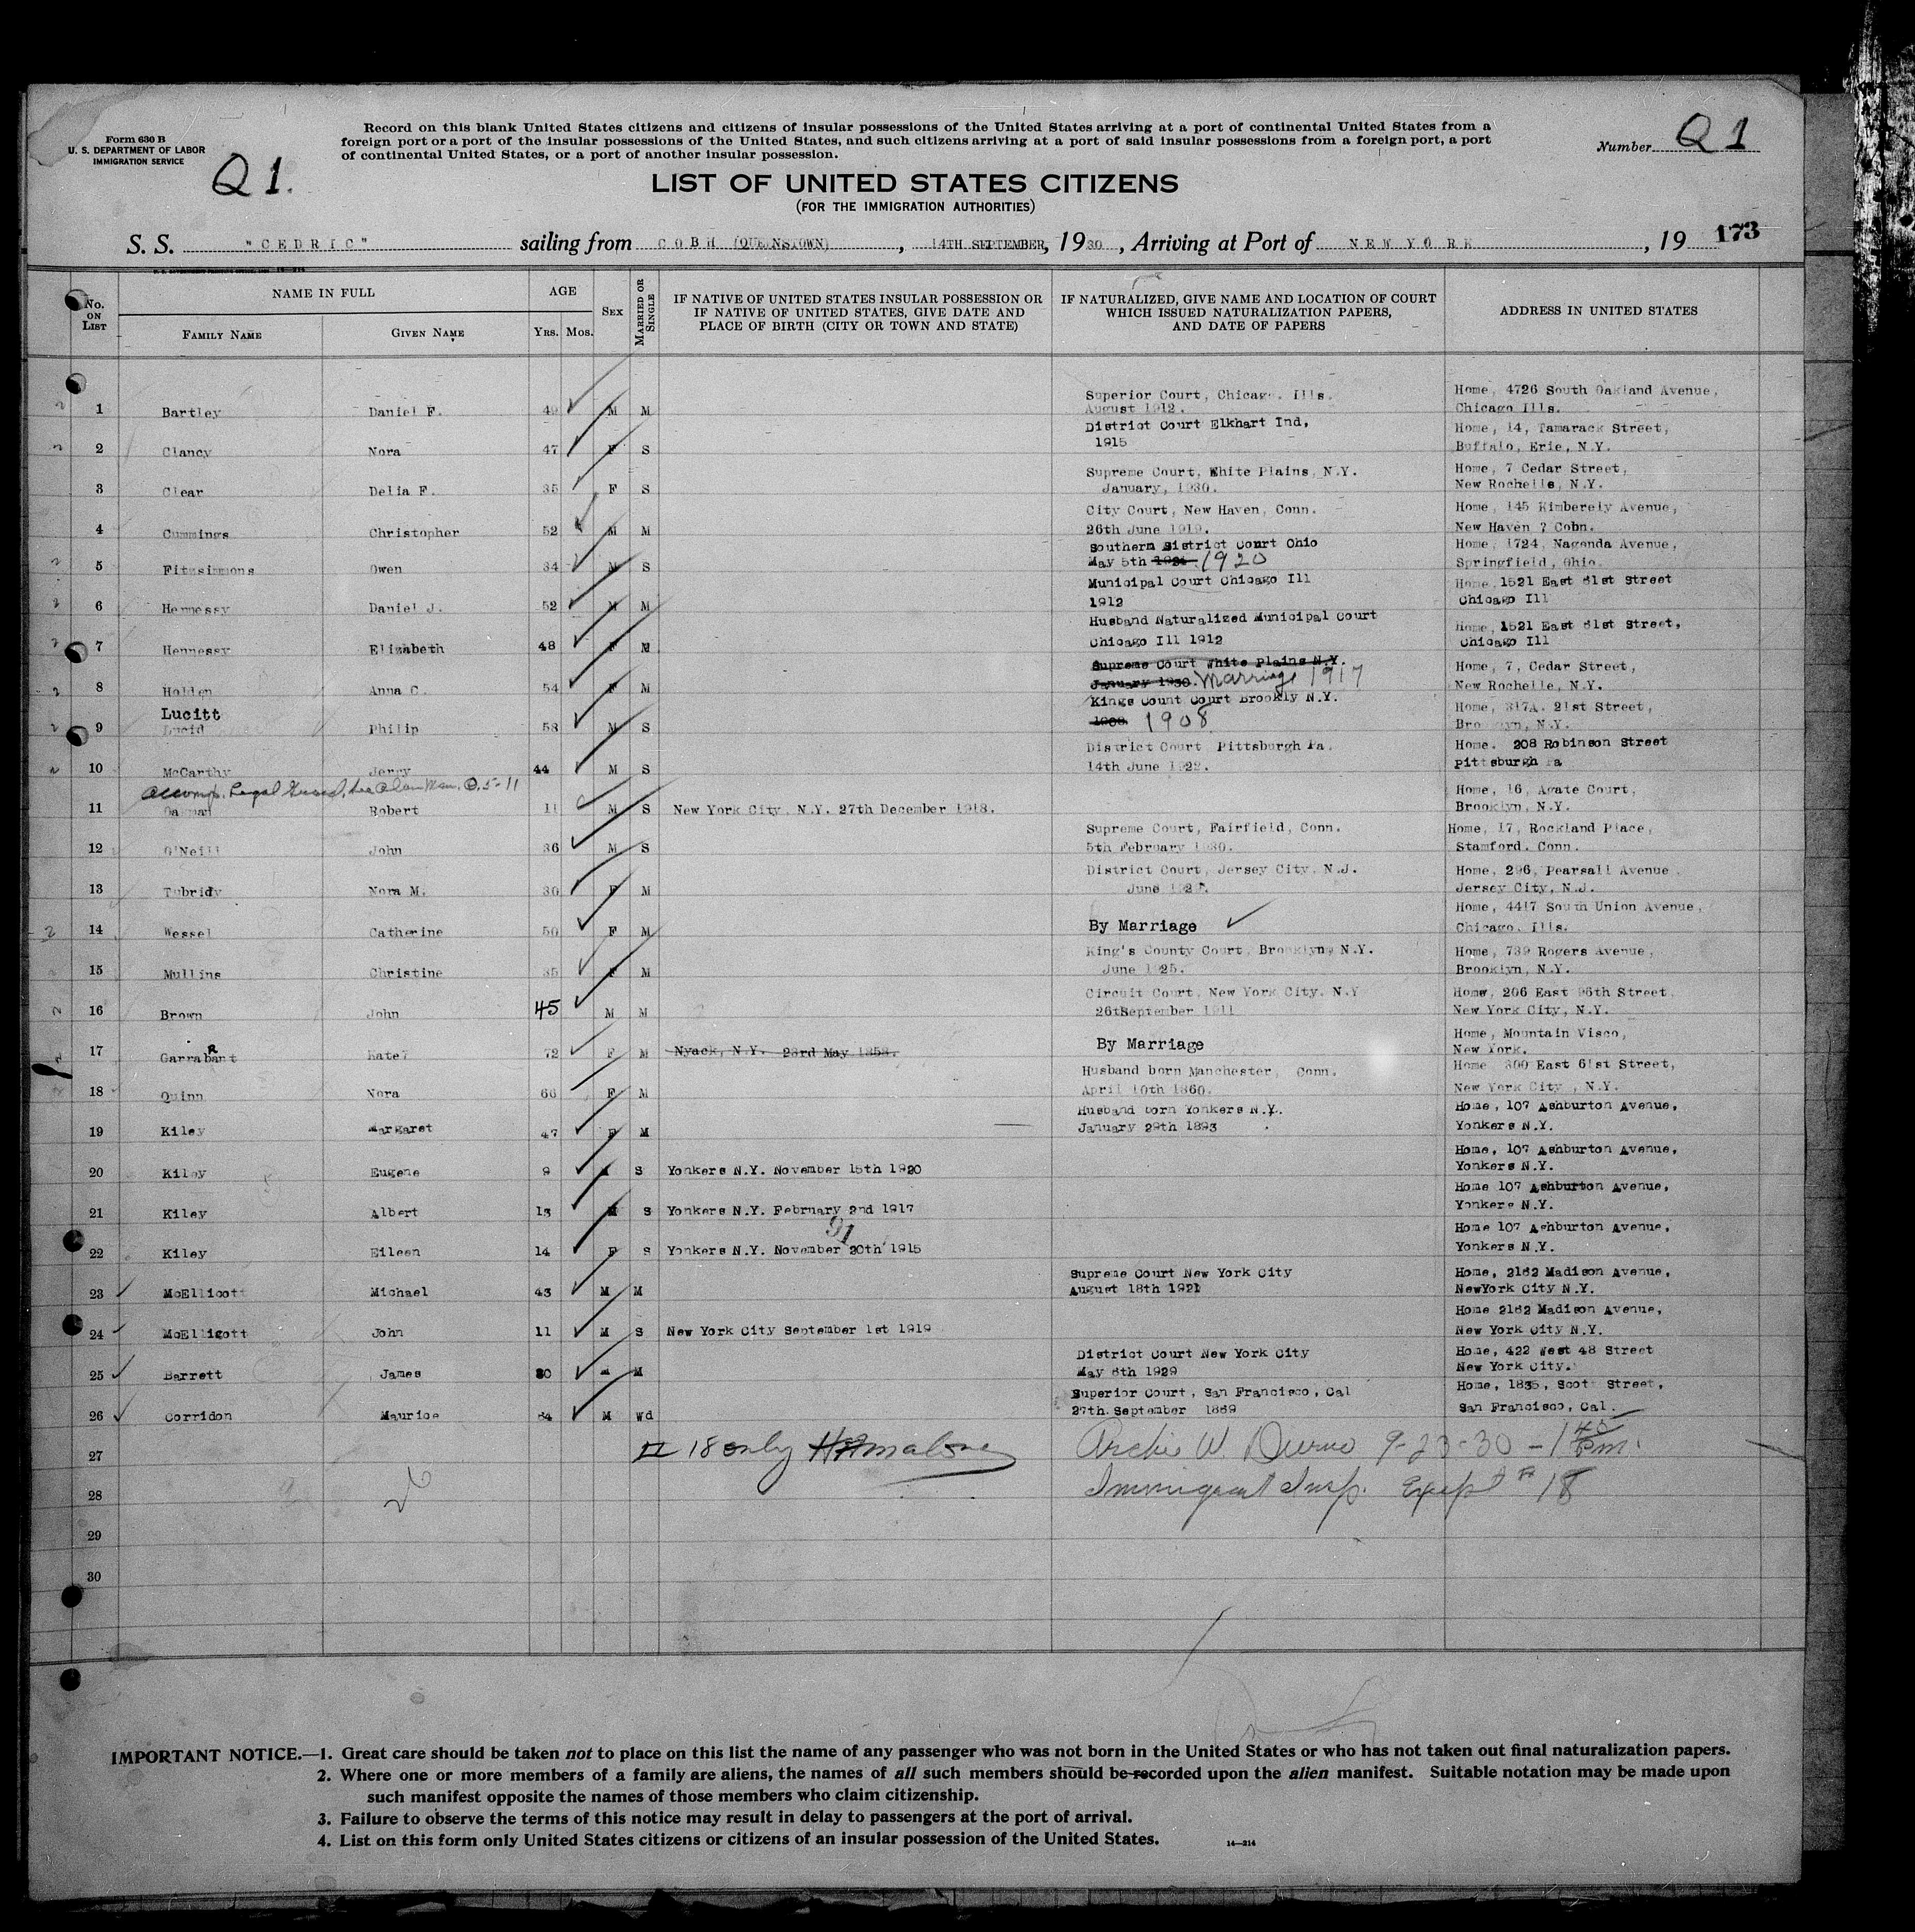 Form 630 B
U. S. DEPARTMENT OF LABOR
IMMIGRATION SERVICE
Q 1.
Record on this blank United States citizens and citizens of insular possessions of the United States arriving at a port of continental United States from a
foreign port or a port of the insular possessions of the United States, and such citizens arriving at a port of said insular possessions from a foreign port, a port
of continental United States, or a port of another insular possession.
Number Q 1
LIST OF UNITED STATES CITIZENS
(FOR THE IMMIGRATION AUTHORITIES)
S. S. "CEDRIC" sailing from COBH (QUEENSTOWN), 14TH SEPTEMBER, 1930, Arriving at Port of NEW YORK, 19 173
No. ON LIST
NAME IN FULL
FAMILY NAME
GIVEN NAME
AGE
YRS. MOS.
SEX
MARRIED OR SINGLE
IF NATIVE OF UNITED STATES INSULAR POSSESSION OR
IF NATIVE OF UNITED STATES, GIVE DATE AND
PLACE OF BIRTH (CITY OR TOWN AND STATE)
IF NATURALIZED, GIVE NAME AND LOCATION OF COURT
WHICH ISSUED NATURALIZATION PAPERS,
AND DATE OF PAPERS
ADDRESS IN UNITED STATES
1 Bartley Daniel F. 49 M M Superior Court, Chicago. Ills. Home, 4726 South Oakland Avenue,
August 1912. Chicago Ills.
2 Clancy Nora 47 F S District Court Elkhart Ind, Home, 14, Tamarack Street,
1915 Buffalo, Erie, N.Y.
3 Clear Delia F. 35 F S Supreme Court, White Plains, N.Y. Home, 7 Cedar Street,
January, 1930. New Rochelle, N.Y.
4 Cummings Christopher 52 M M City Court, New Haven, Conn. Home, 145 Kimberely Avenue,
26th June 1919. New Haven ? Cobn.
5 Fitzsimmons Owen 34 M S Southern District Court Ohio Home, 1724, Naganda Avenue,
May 5th 1920 Springfield, Ohio.
6 Hennessy Daniel J. 52 M M Municipal Court Chicago Ill Home, 1521 East 81st Street
1912 Chicago Ill
7 Hennessy Elizabeth 48 F M Husband Naturalized Municipal Court Home, 1521 East 81st Street,
Chicago Ill 1912 Chicago Ill
8 Holden Anna C. 54 F M Supreme Court White Plains N.Y. Home, 7, Cedar Street,
January 1930. Marriage 1917 New Rochelle, N.Y.
Lucitt
9 Lucid Philip 58 M S Kings Count Court Brookly N.Y. Home, 317A. 21st Street,
1908. 1908 Brooklyn, N.Y.
10 McCarthy Jerry 44 M S District Court Pittsburgh Pa. Home. 208 Robinson Street
14th June 1922. Pittsburgh Pa
11 Robert 11 M S New York City, N.Y. 27th December 1918. Home, 16, Agate Court,
Brooklyn, N.Y.
12 O'Neill John 36 M S Supreme Court, Fairfield, Conn. Home, 17, Rockland Place,
5th February 1930. Stamford. Conn.
13 Tubridy Nora M. 30 F M District Court, Jersey City, N.J. Home, 296, Pearsall Avenue,
June Jersey City, N.J.
14 Wessel Catherine 50 F M By Marriage Home, 4417 South Union Avenue,
Chicago. Ills.
15 Mullins Christine 35 F M King's County Court, Brooklyn, N.Y. Home, 739 Rogers Avenue,
June 1925. Brooklyn, N.Y.
16 Brown John 45 M M Circuit Court, New York City. N.Y Home, 206 East 96th Street
26thSeptember 1911 New York City, N.Y.
17 Garrabrant Kate 72 F M Nyack, N.Y. 23rd May 1858. By Marriage Home, Mountain Visco,
New York.
18 Quinn Nora 66 F M Husband born Manchester, Conn. Home 300 East 61st Street,
April 10th 1860. New York City, N.Y.
19 Kiley Margaret 47 F M Husband born Yonkers N.Y. Home, 107 Ashburton Avenue,
January 29th 1893 Yonkers N.Y.
20 Kiley Eugene 9 M S Yonkers N.Y. November 15th 1920 Home, 107 Ashburton Avenue,
Yonkers N.Y.
21 Kiley Albert 13 M S Yonkers N.Y. February 2nd 1917 Home 107 Ashburton Avenue,
Yonkers N.Y.
91
22 Kiley Eileen 14 F S Yonkers N.Y. November 20th 1915 Home 107 Ashburton Avenue,
Yonkers N.Y.
23 McEllicott Michael 43 M M Supreme Court New York City Home, 2182 Madison Avenue,
August 18th 1921 NewYork City N.Y.
24 McElligott John 11 M S New York City September 1st 1919 Home 2182 Madison Avenue,
New York City N.Y.
25 Barrett James 30 M M District Court New York City Home, 422 West 48 Street
May 8th 1929 New York City.
26 Corridon Maurice 84 M Wd Superior Court, San Francisco, Cal Home, 1835, Scott Street,
27th September 1889 San Francisco, Cal.
27 18 only Archie W. 9-23-30 - 1 45 pm.
28 Immigrant Insp. Except # 18
29
30
IMPORTANT NOTICE.—1. Great care should be taken not to place on this list the name of any passenger who was not born in the United States or who has not taken out final naturalization papers.
2. Where one or more members of a family are aliens, the names of all such members should be recorded upon the alien manifest. Suitable notation may be made upon
such manifest opposite the names of those members who claim citizenship.
3. Failure to observe the terms of this notice may result in delay to passengers at the port of arrival.
4. List on this form only United States citizens or citizens of an insular possession of the United States.
14—214